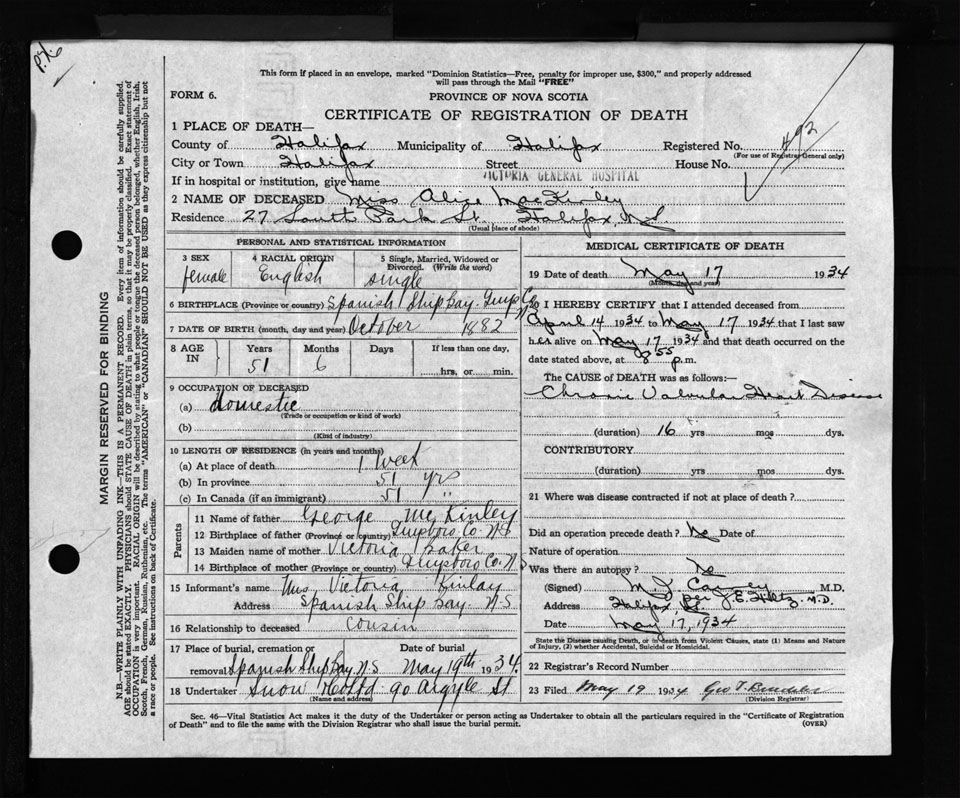 P.S.6
This form if placed in an envelope, marked "Dominion Statistics—Free, penalty for improper use, $300," and properly addressed
will pass through the Mail "FREE"
FORM 6.
PROVINCE OF NOVA SCOTIA
CERTIFICATE OF REGISTRATION OF DEATH
1 PLACE OF DEATH—
County of Halifax Municipality of Halifax Registered No. 492
(For use of Registrar General only)
City or Town Halifax Street House No.
If in hospital or institution, give name VICTORIA GENERAL HOSPITAL
2 NAME OF DECEASED Miss Alice MacKinley
Residence 27 South Park St. Halifax, N.S.
(Usual place of abode)
PERSONAL AND STATISTICAL INFORMATION
3 SEX 4 RACIAL ORIGIN 5 Single, Married, Widowed or
Divorced. (Write the word)
female English single
6 BIRTHPLACE (Province or country) Spanish Ship Bay. Guys Co N.S
7 DATE OF BIRTH (month, day and year) October 1882
8 AGE IN Years Months Days If less than one day,
51 6 hrs. or min.
9 OCCUPATION OF DECEASED
(a) domestic
(Trade or occupation or kind of work)
(b)
(Kind of industry)
10 LENGTH OF RESIDENCE (in years and months)
(a) At place of death 1 Week
(b) In province 51 yrs
(c) In Canada (if an immigrant) 51 "
Parents
11 Name of father George McKinley
12 Birthplace of father (Province or country) Guysboro Co. N.S
13 Maiden name of mother Victoria Baker
14 Birthplace of mother (Province or country) Guysboro Co. N.S
15 Informant's name Mrs Victoria Kinlay
Address Spanish Ship Bay. N.S
16 Relationship to deceased Cousin
17 Place of burial, cremation or Date of burial
removal Spanish Ship Bay N.S May 19th 1934
18 Undertaker Snow & Co Ltd 90 Argyle St
(Name and address)
MEDICAL CERTIFICATE OF DEATH
19 Date of death May 17 1934
(Month, day and year)
20 I HEREBY CERTIFY that I attended deceased from
April 14 1934 to May 17 1934 that I last saw
her alive on May 17 1934 and that death occurred on the
date stated above, at 8 55 p.m.
The CAUSE of DEATH was as follows:—
Chronic Valvular Heart Disease
(duration) 16 yrs mos dys.
CONTRIBUTORY
(duration) yrs mos dys.
21 Where was disease contracted if not at place of death?
Did an operation precede death? No Date of
Nature of operation
Was there an autopsy? No
(Signed) M.D.
Address Halifax Per J.E. M.D.
Date May 17, 1934
State the Disease causing Death, or in death from Violent Causes, state (1) Means and Nature
of Injury, (2) whether Accidental, Suicidal or Homicidal.
22 Registrar's Record Number
23 Filed May 19 1934 Geo T.
(Division Registrar)
Sec. 46—Vital Statistics Act makes it the duty of the Undertaker or person acting as Undertaker to obtain all the particulars required in the "Certificate of Registration
of Death" and to file the same with the Division Registrar who shall issue the burial permit. (OVER)
MARGIN RESERVED FOR BINDING
N.B.—WRITE PLAINLY WITH UNFADING INK—THIS IS A PERMANENT RECORD. Every item of information should be carefully supplied.
AGE should be stated EXACTLY. PHYSICIANS should STATE CAUSE OF DEATH in plain terms, so that it may be properly classified. Exact statement of
OCCUPATION is very important. RACIAL ORIGIN will be described by stating to what people or tongue the deceased person belonged, whether English, Irish,
Scotch, French, German, Russian, Ruthenian, etc. The terms "AMERICAN" or "CANADIAN" SHOULD NOT BE USED as they express citizenship but not
a race or people. See instructions on back of Certificate.